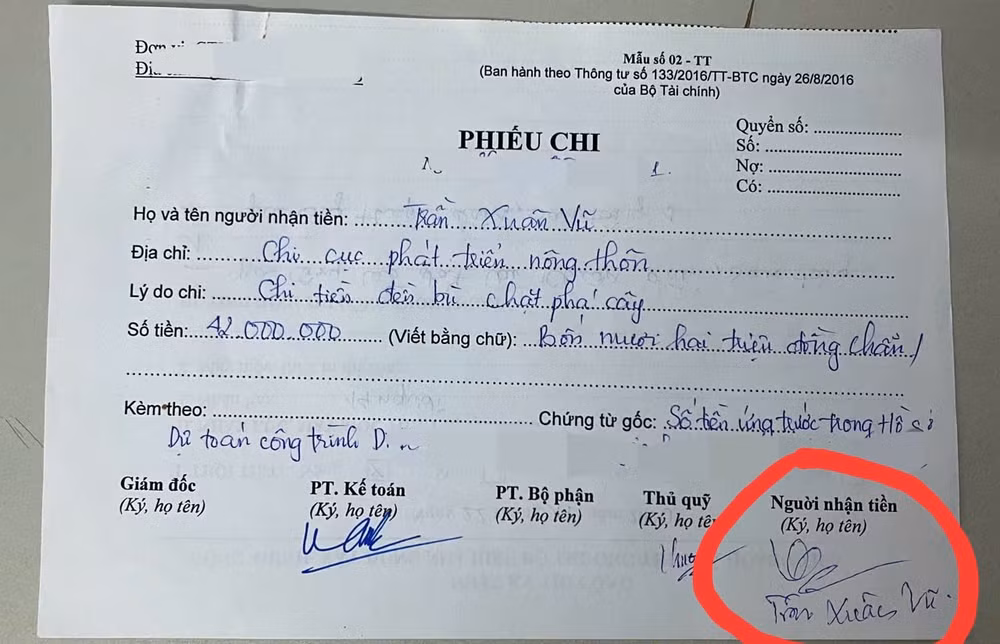 Mẫu số 02 - TT
(Ban hành theo Thông tư số 133/2016/TT-BTC ngày 26/8/2016
của Bộ Tài chính)
PHIẾU CHI
Quyển số: ....................
Số: ....................
Nợ: ....................
Có: ....................
Họ và tên người nhận tiền: Trần Xuân Vũ
Địa chỉ: Chi cục phát triển nông thôn
Lý do chi: Chi tiền đền bù chặt phá cây
Số tiền: 42.000.000 (Viết bằng chữ): Bốn mươi hai triệu đồng chẵn/
Kèm theo: .................... Chứng từ gốc: Số tiền ứng trước trong Hồ sơ
Dự toán công trình
Giám đốc PT. Kế toán PT. Bộ phận Thủ quỹ Người nhận tiền
(Ký, họ tên) (Ký, họ tên) (Ký, họ tên) (Ký, họ tên (Ký, họ tên)
Trần Xuân Vũ